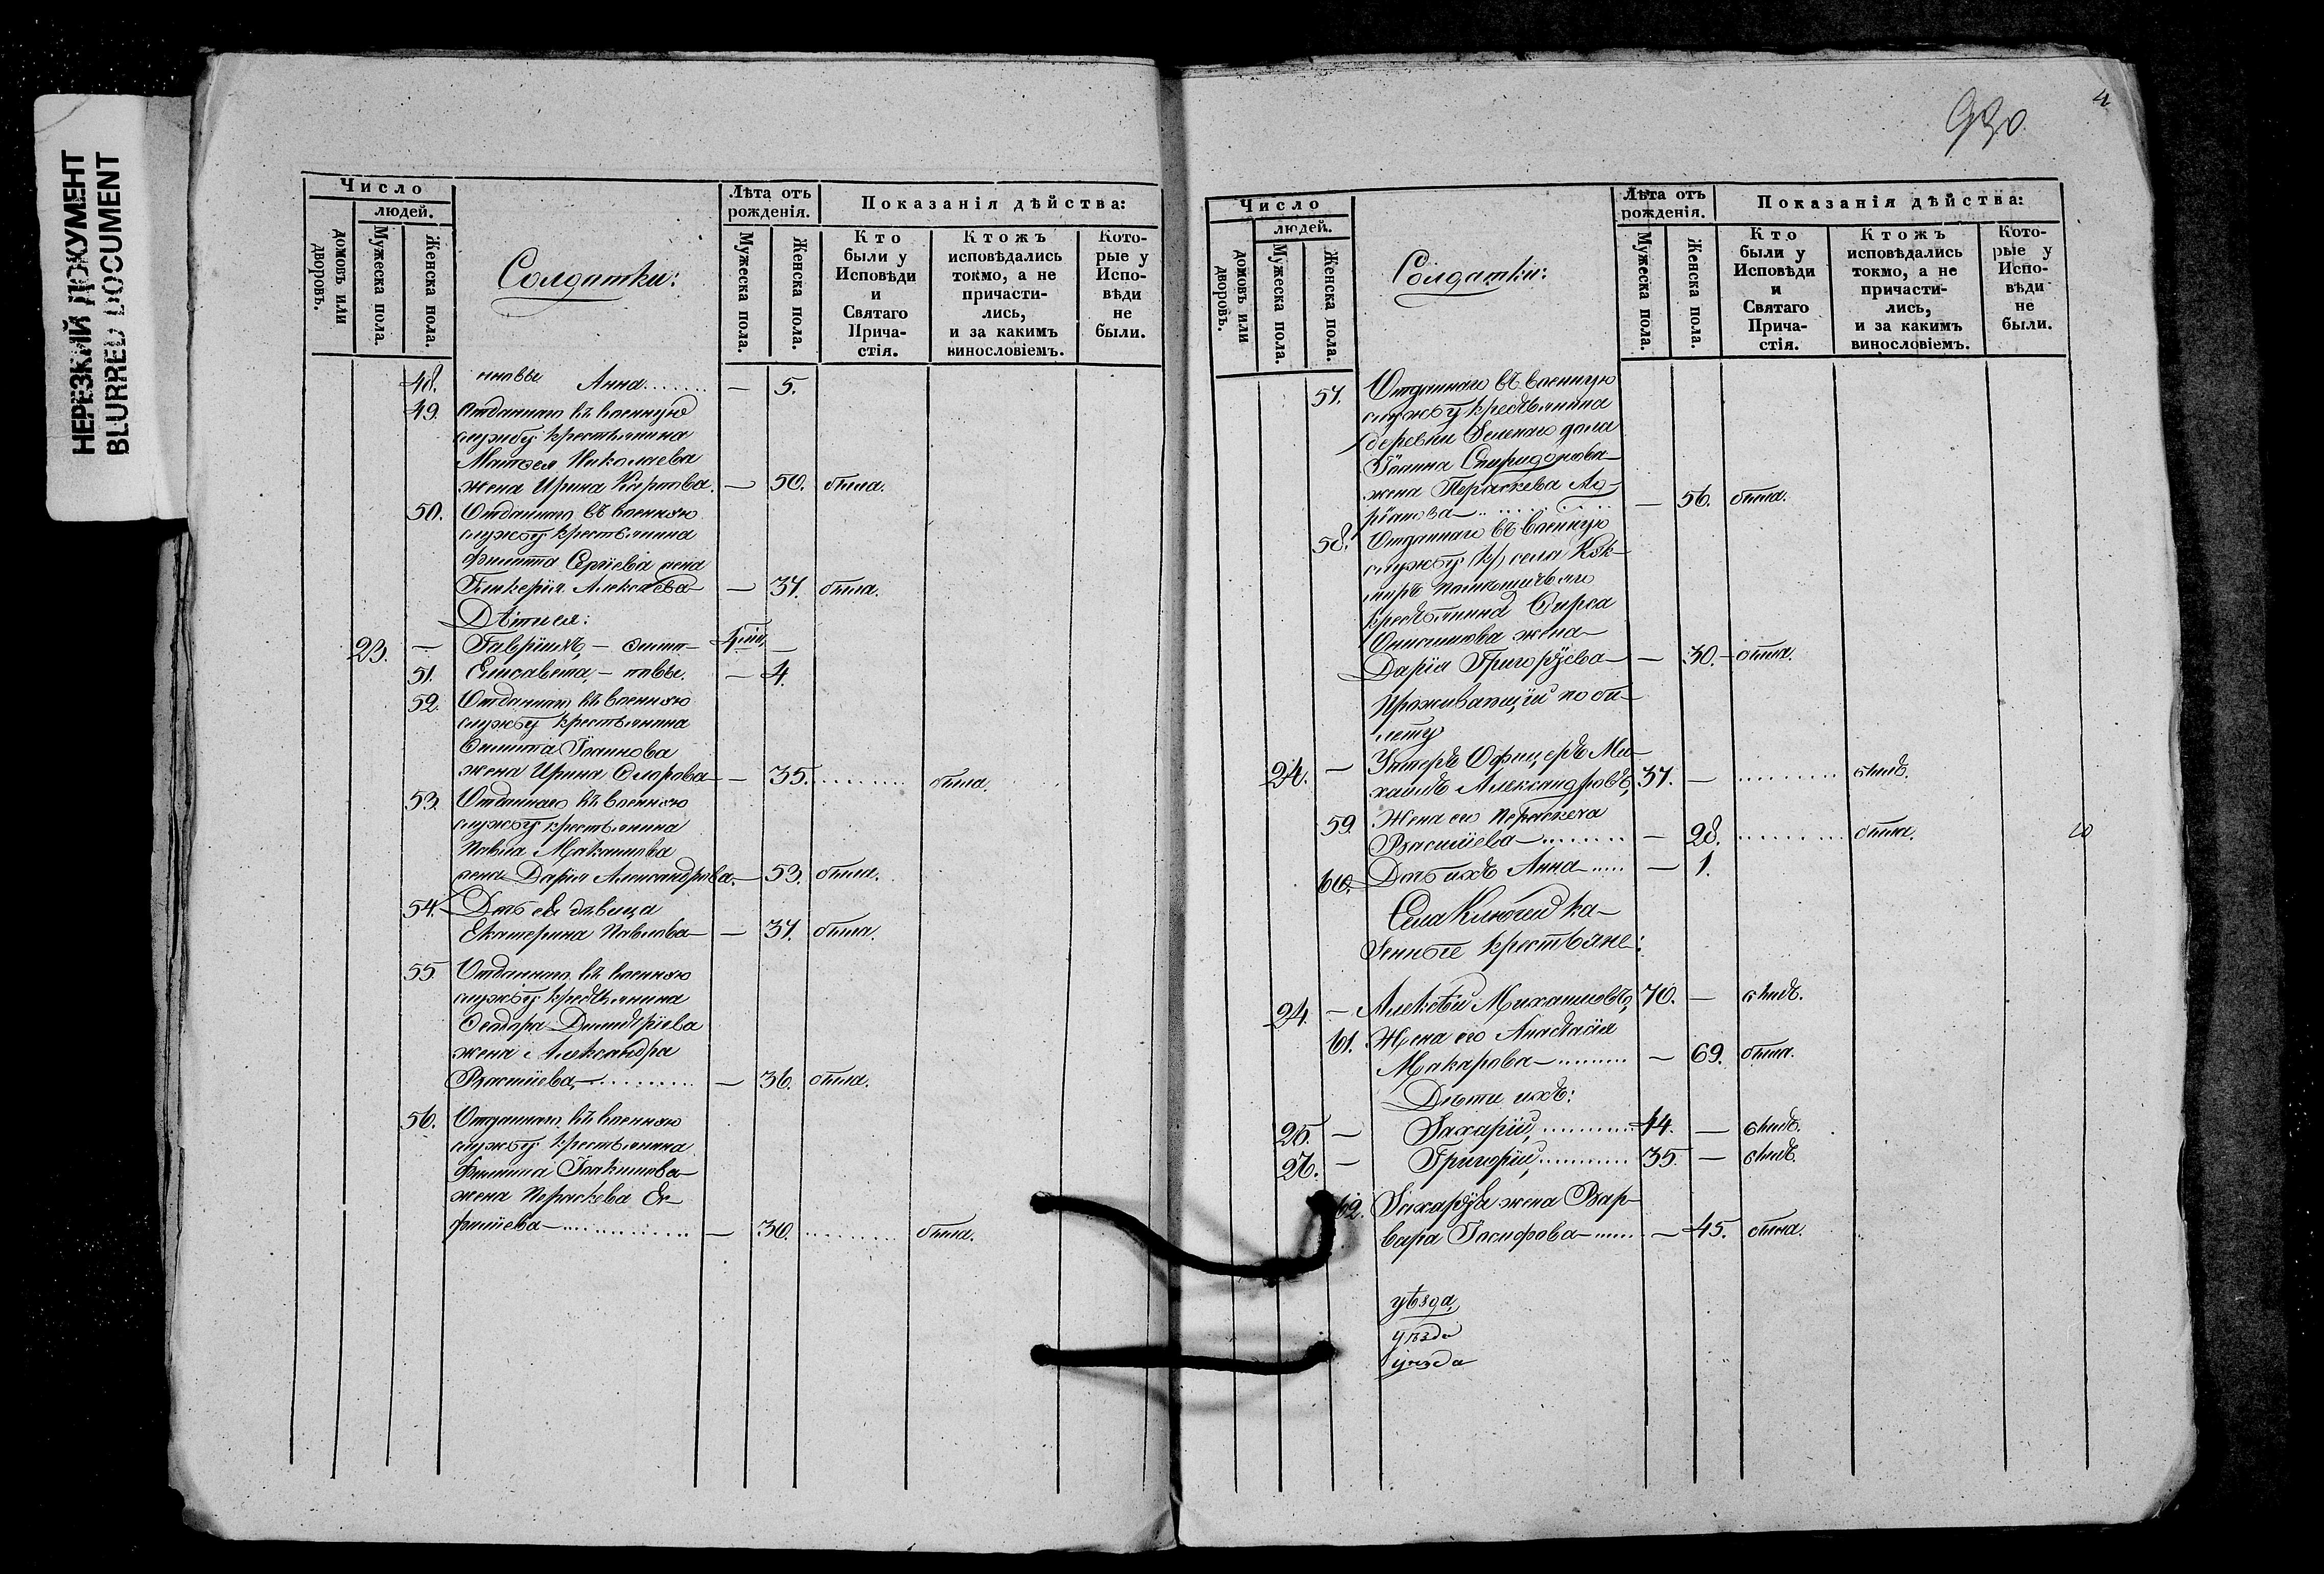 НЕРЕЗКИЙ ДОКУМЕНТ
BLURRED DOCUMENT
Число
людей.
домовъ или дворовъ.
Мужеска пола.
Женска пола.
Солдатки:
Лѣта отъ рожденія.
Мужеска пола.
Женска пола.
Показанія дѣйства:
Кто были у Исповѣди и Святаго Прича-стія.
Ктожъ исповѣдались токмо, а не причасти-лись, и за какимъ винословіемъ.
Кото-рые у Испо-вѣди не были.
48. Анна........ — 5.
49. Отданнаго въ военную
службу крестьянина
Матѳея Николаева
жена Ирина Карпова. — 50. была.
50. Отданнаго въ военную
службу крестьянина
Филиппа Сергіева жена
Гликерія Алексѣева — 37. была.
Дѣти ея:
23. — Гавріилъ, —
51. Елисавета, — — 4.
52. Отданнаго въ военную
службу крестьянина
Филиппа Іоаннова
жена Ирина Флорова — 35. ......... была.
53. Отданнаго въ военную
службу крестьянина
Павла Максимова
жена Дарія Александрова. — 53. была.
54. Дочь ея дѣвица
Екатерина Павлова — 37. была.
55 Отданнаго въ военную
службу крестьянина
Ѳеодора Димитріева
жена Александра
Васильева, — ......... — 36. была.
56. Отданнаго въ военную
службу крестьянина
Филиппа Іоакимова
жена Параскева Ев-
фиміева — ............ — 30. ......... была.
930
4
Число
людей.
домовъ или дворовъ.
Мужеска пола.
Женска пола.
Солдатки:
Лѣта отъ рожденія.
Мужеска пола.
Женска пола.
Показанія дѣйства:
Кто были у Исповѣди и Святаго Прича-стія.
Ктожъ исповѣдались токмо, а не причасти-лись, и за какимъ винословіемъ.
Кото-рые у Испо-вѣди не были.
57. Отданнаго въ военную
службу крестьянина
деревни Зеленаго дола
Іоанна Спиридонова
жена Параскева Ла-
ріонова — ......... — 56. была.
58. Отданнаго въ военную
службу кр. села Кук-
моръ помѣщичьяго
крестьянина Фирса
Онисимова жена
Дарія Григоріева — — 30. — была.
Проживающій по би-
лету
24. — Унтеръ Офицеръ Ми-
хаилъ Александровъ, 37. — ......... былъ.
59. Жена его Параскева
Васильева — ......... — 28. ......... была.
60. Дочь ихъ Анна — ..... — 1.
Села Ключей ка-
зенные крестьяне:
24. — Алексѣй Михайловъ, 70. — былъ.
61. Жена его Анастасія
Макарова — ......... — 69. была.
Дѣти ихъ:
25. — Захарій, ......... 44. — былъ.
26. — Григорій, ......... 35. — былъ.
62. Захарія жена Вар-
вара Іосифова — ...... — 45. была.
уѣзда,
уѣзда
уѣзда